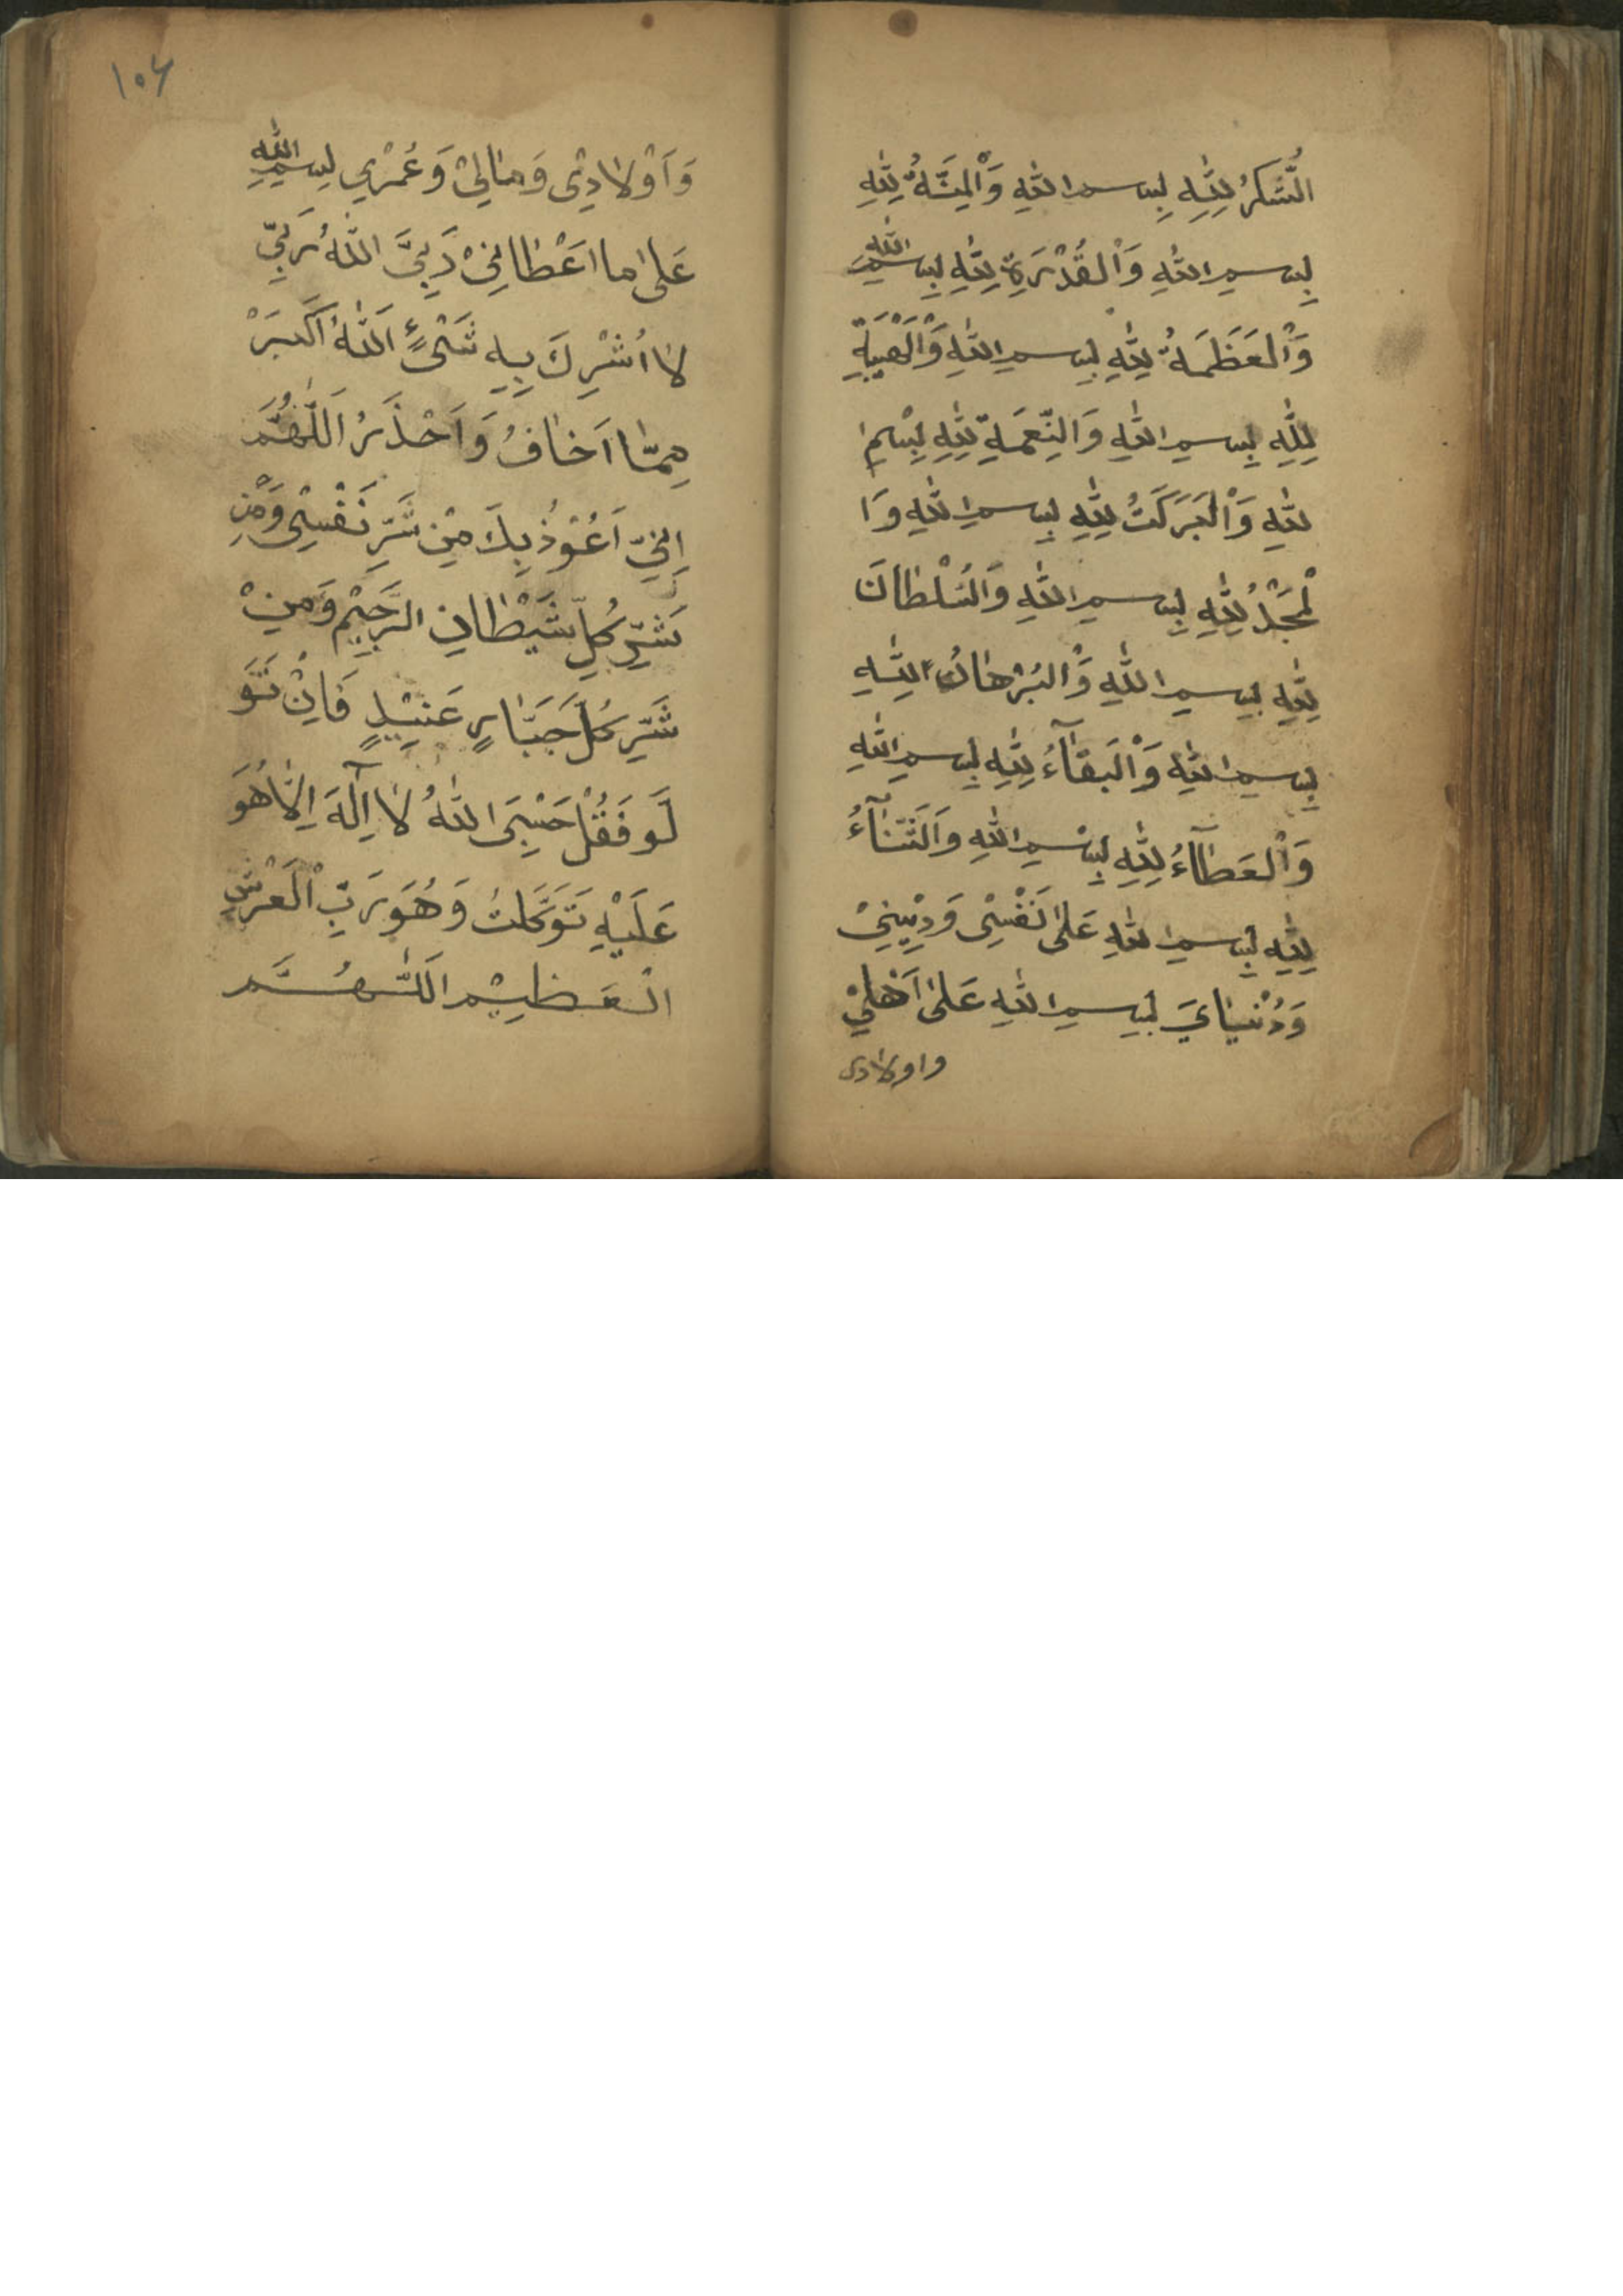 الشُّكرُ لِلّٰهِ بِسم اللّٰهِ وَالْمِنَّةُ لِلّٰهِ
بِسمِ اللّٰهِ وَالْقُدْرَةِ لِلّٰهِ بِسمِ اللّٰهِ
وَالْعَظَمَةُ لِلّٰهِ بِسمِ اللّٰهِ وَالْهَيْبَةِ
لِلّٰهِ بِسمِ اللّٰهِ وَالنِّعمَةِ لِلّٰهِ بِسْمِ ا
للّٰهِ وَالْبَرَكَتُ لِلّٰهِ بِسمِ اللّٰهِ وَا
لْمَجْدُ لِلّٰهِ بِسمِ اللّٰهِ وَالسُلْطَانَ
لِلّٰهِ بِسمِ اللّٰهِ وَالْبُرْهَانُ لِلّٰهِ
بِسمِ اللّٰهِ وَالْبَقَآءُ لِلّٰهِ بِسمِ اللّٰهِ
وَالْعَطَآءُ لِلّٰهِ بِسْمِ اللّٰهِ وَالَثَنَآءُ
لِلّٰهِ بِسمِ اللّٰهِ عَلىٰ نَفْسِىْ وَدِيْنِيْ
وَدُنْيَايَ بِسمِ اللّٰهِ عَلىٰ اَهْلِيْ
واولادى
١٠٤
وَاَوْلَادِىْ وَمَالِيْ وَعُمْرِي بِسمِ اللّٰهِ
عَلىٰ ما اعَْطَانِيْ رَبِّىَ اللّٰهُ رَبِّيْ
لَا اُشْرِكَ بِهِ شَىْءٍ اَللّٰهُ اَكْبَرْ
مِمَّا اَخَافُ وَاَحْذَرُ اَللّٰهُمَّ
اِنِيّ اَعُوْذُ بِكَ مِنْ شَرِّ نَفْسِىْ وَمْنِ
شَرِّ كُلِّ شَيْطَانِ الرَجِيْمِ وَمِنْ
شَرِّ كُلَّ جَبَّارٍ عَنِيْدٍ فَاِنْ تَوَ
لَّو فَقُلْ حَسْبِىَ اللّٰهُ لَا اِلٰهَ اِلَّا هُوَ
عَلَيْهِ تَوَكَّلتُ وَهُوَ رَبِّ الْعَرْشِ
الْعَظِيْم اَللّٰهُمَّ